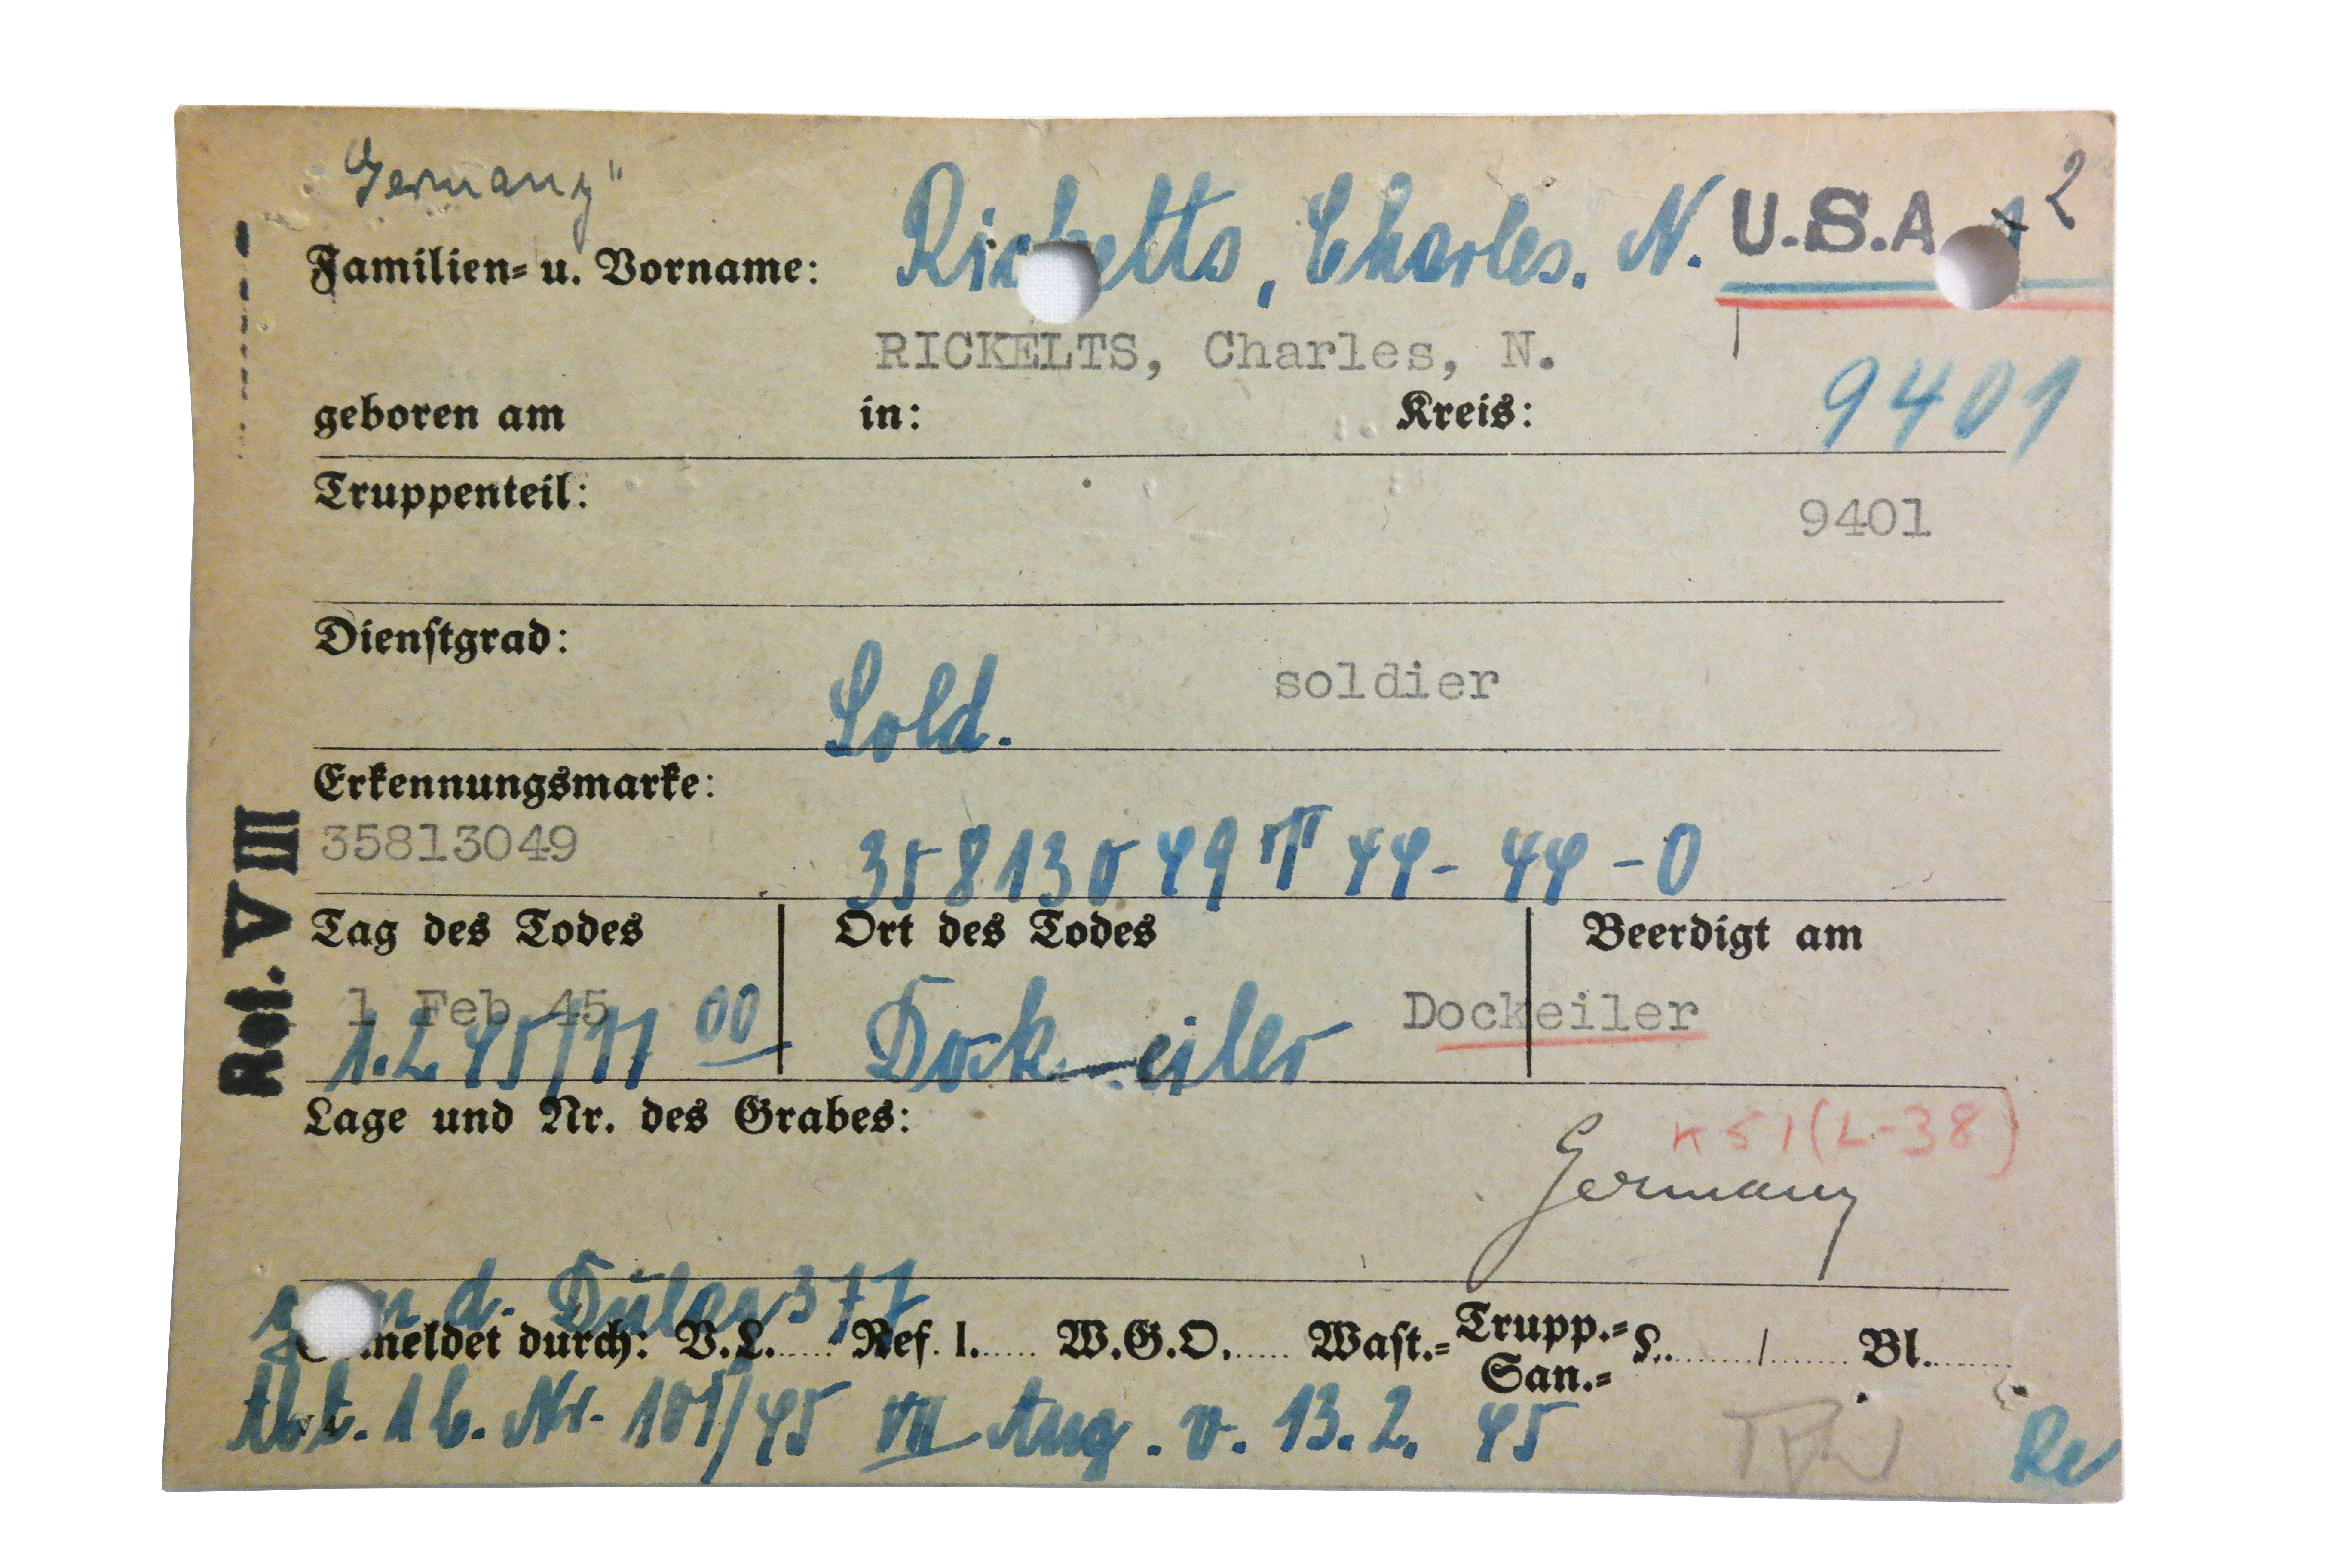 Germany"
Ricketts, Charles. N. U.S.A. 2
Familien- u. Vorname:
RICKELTS, Charles, N.
9401
geboren am in: Kreis:
Truppenteil:
9401
Dienstgrad:
Sold. soldier
Erkennungsmarke:
35813049 35813049 T 44- 44 -O
Tag des Todes Ort des Todes Beerdigt am
1 Feb 45 Dockeiler
1.2.45/17 00 Dock-eiler
Lage und Nr. des Grabes:
K51(L-38)
Germany
d. Dulag 377
Gemeldet durch: V.L..... Ref. I..... W.G.O..... Wast.= Trupp.= San.= L......../....... Bl........
Abt. 1b. Nr. 101/45 VII Aug. v. 13.2. 45
Re
Ref. VIII